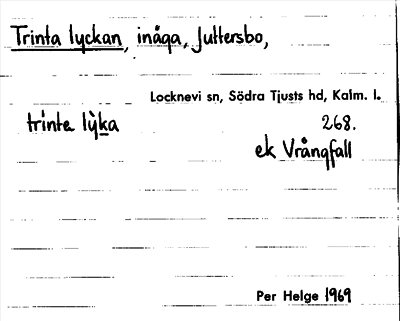 Trinta lyckan, inåga, Juttersbo,
Locknevi sn, Södra Tjusts hd, Kalm. l.
trinta lỳka 268.
ek Vrångfall
Per Helge 1969